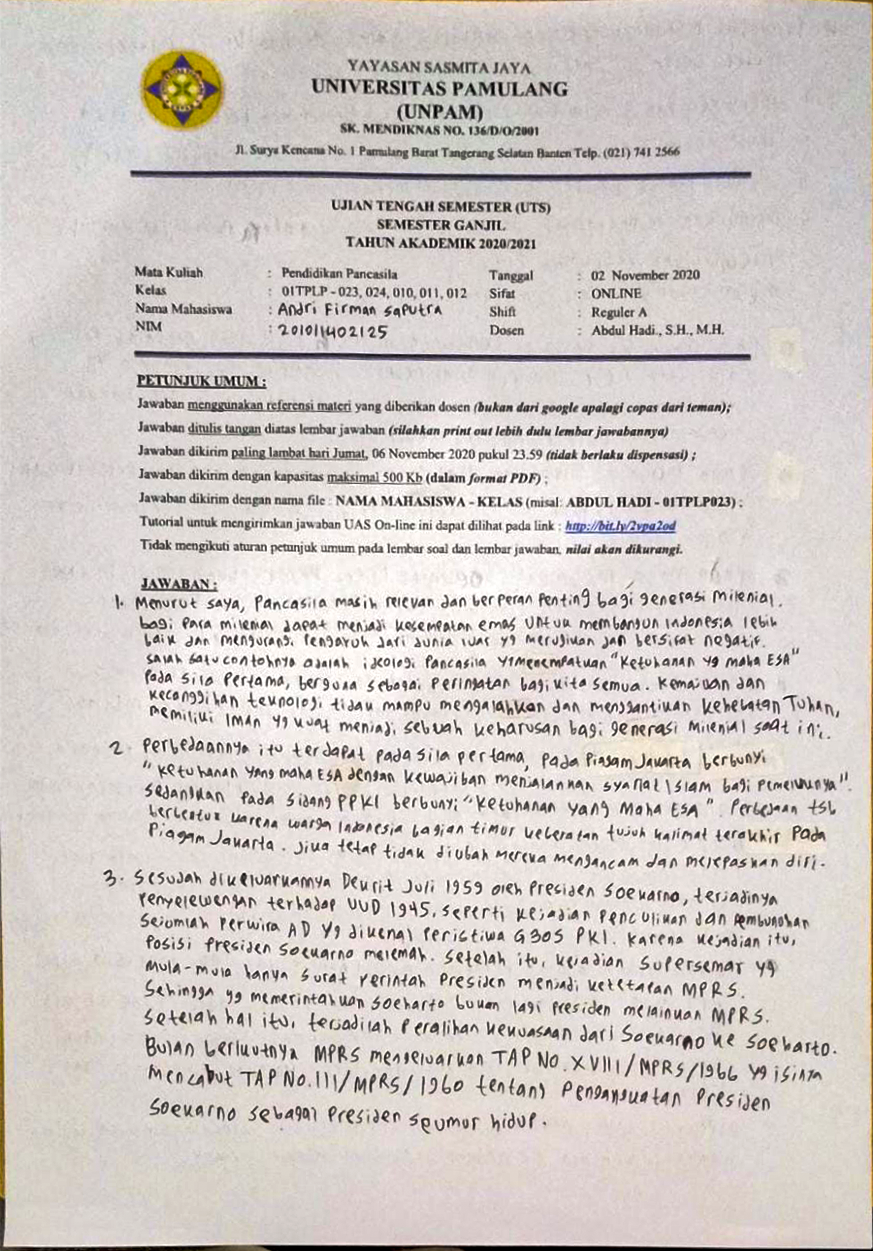 YAYASAN SASMITA JAYA
UNIVERSITAS PAMULANG
(UNPAM)
SK. MENDIKNAS NO. 136/D/O/2001
Jl. Surya Kencana No. 1 Pamulang Barat Tangerang Selatan Banten Telp. (021) 741 2566
UJIAN TENGAH SEMESTER (UTS)
SEMESTER GANJIL
TAHUN AKADEMIK 2020/2021
Mata Kuliah : Pendidikan Pancasila Tanggal : 02 November 2020
Kelas : 01TPLP - 023, 024, 010, 011, 012 Sifat : ONLINE
Nama Mahasiswa : Andri Firman Saputra Shift : Reguler A
NIM : 201011402125 Dosen : Abdul Hadi., S.H., M.H.
PETUNJUK UMUM :
Jawaban menggunakan referensi materi yang diberikan dosen (bukan dari google apalagi copas dari teman);
Jawaban ditulis tangan diatas lembar jawaban (silahkan print out lebih dulu lembar jawabannya)
Jawaban dikirim paling lambat hari Jumat, 06 November 2020 pukul 23.59 (tidak berlaku dispensasi) ;
Jawaban dikirim dengan kapasitas maksimal 500 Kb (dalam format PDF) ;
Jawaban dikirim dengan nama file : NAMA MAHASISWA - KELAS (misal: ABDUL HADI - 01TPLP023) ;
Tutorial untuk mengirimkan jawaban UAS On-line ini dapat dilihat pada link : http://bit.ly/2vpa2od
Tidak mengikuti aturan petunjuk umum pada lembar soal dan lembar jawaban, nilai akan dikurangi.
JAWABAN :
1. Menurut saya, Pancasila masih relevan dan berperan penting bagi generasi milenial.
bagi para milenial dapat menjadi kesempatan emas untuk membangun Indonesia lebih
baik dan mengurangi pengaruh dari dunia luar yg merugikan dan bersifat negatif.
salah satu contohnya adalah ideologi Pancasila yg menempatkan "Ketuhanan yg maha ESA"
pada sila pertama, berguna sebagai peringatan bagi kita semua. Kemajuan dan
kecanggihan teknologi tidak mampu mengalahkan dan menggantikan kehebatan Tuhan,
memiliki iman yg kuat menjadi sebuah keharusan bagi generasi milenial saat ini.
2. Perbedaannya itu terdapat pada sila pertama, pada Piagam Jakarta berbunyi
"Ketuhanan yang maha ESA dengan kewajiban menjalankan syariat Islam bagi pemeluknya".
sedangkan pada sidang PPKI berbunyi "Ketuhanan yang Maha ESA". Perbedaan tsb
berbentuk karena warga Indonesia bagian timur keberatan tujuh kalimat terakhir pada
Piagam Jakarta. Jika tetap tidak diubah mereka mengancam dan melepaskan diri.
3. Sesudah dikeluarkannya Dekrit Juli 1959 oleh Presiden Soekarno, terjadinya
penyelewengan terhadap UUD 1945. seperti kejadian penculikan dan pembunuhan
sejumlah perwira AD yg dikenal peristiwa G30S PKI. Karena kejadian itu,
posisi Presiden Soekarno melemah. Setelah itu, kejadian Supersemar yg
mula-mula hanya surat perintah Presiden menjadi ketetapan MPRS.
Sehingga yg memerintahkan Soeharto bukan lagi presiden melainkan MPRS.
Setelah hal itu, terjadilah peralihan kekuasaan dari Soekarno ke Soeharto.
Bulan berikutnya MPRS mengeluarkan TAP No. XVIII/MPRS/1966 yg isinya
mencabut TAP No. III/MPRS/1960 tentang Pengangkatan Presiden
Soekarno sebagai Presiden seumur hidup.